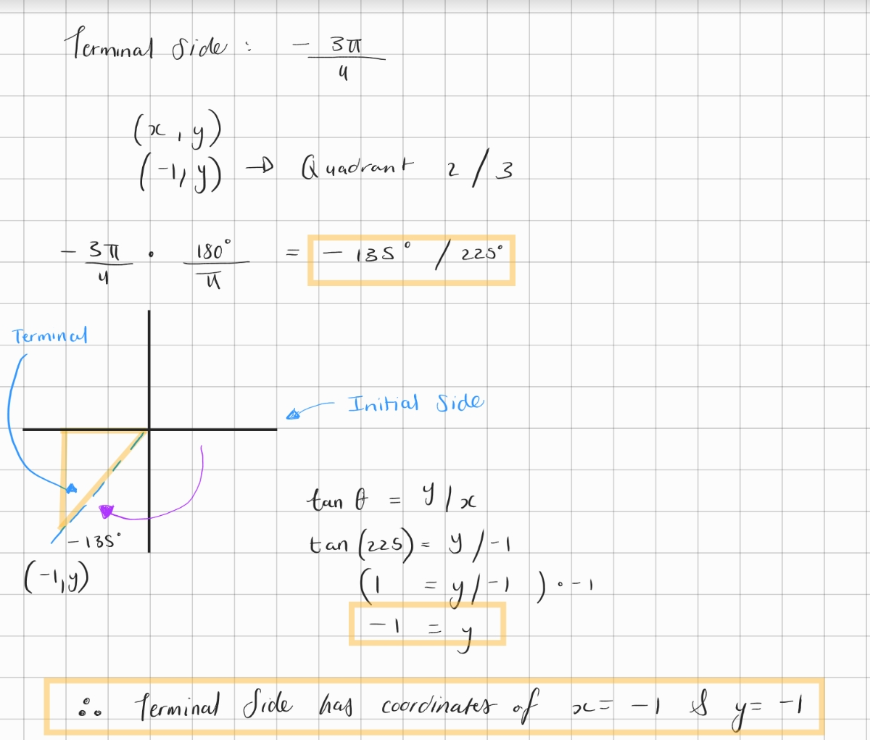 Terminal Side : - 3π/4
(x, y)
(-1, y) → Quadrant 2/3
- 3π/4 · 180°/π = - 135° / 225°
Terminal
Initial Side
- 135°
(-1, y)
tan θ = y/x
tan (225) = y/-1
(1 = y/-1) · -1
-1 = y
∴ Terminal Side has coordinates of x = -1 & y = -1